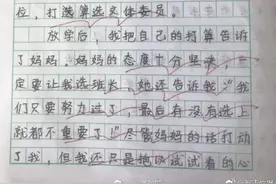 位，打算算选文体委员。
放学后，我把自己的打算告诉
了妈妈，妈妈的态度十分坚决，一
定要让我选班长，她还告诉我：“我
们只要努力过了，最后有没有选上
就都不重要了！”尽管妈妈的话打动
了我，但我还只是抱以试试看的心